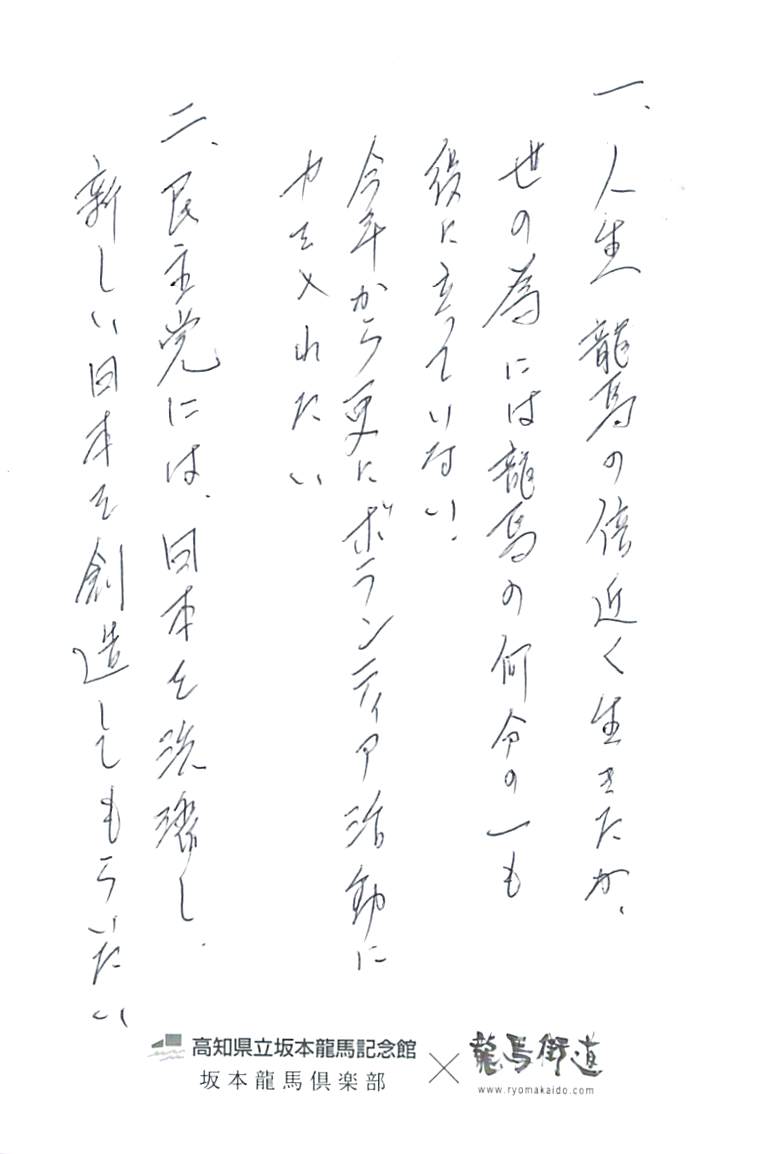 一、人生 龍馬の倍近く生きたが、
世の為には龍馬の何分の一も
役に立っていない。
今年から更にボランティア活動に
力を入れたい
二、民主党には、日本を洗濯し、
新しい日本を創造してもらいたい
高知県立坂本龍馬記念館
坂本龍馬倶楽部
×
龍馬街道
www.ryomakaido.com